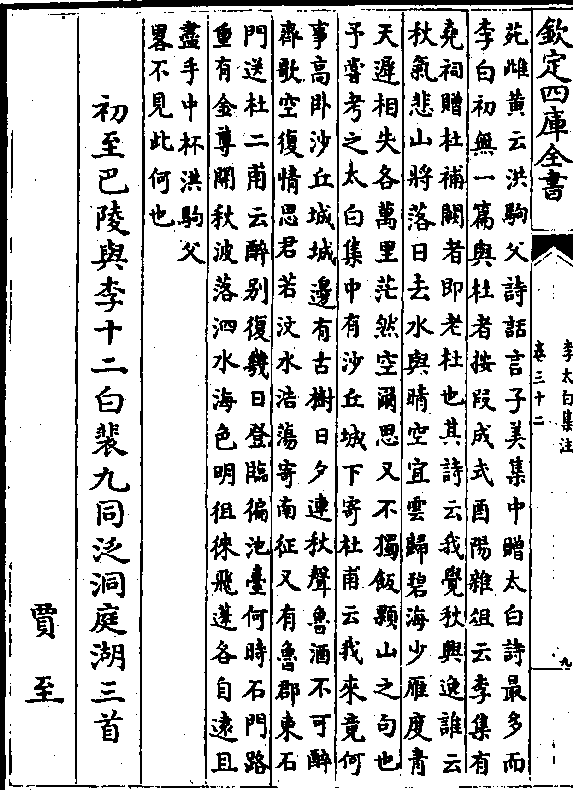 欽定四庫全書
李太白集注
卷三十二
九
苑雌黄云洪駒父詩話言子美集中贈太白詩最多而
李白初無一篇與杜者按段成式酉陽雜俎云李集有
堯祠贈杜補闕者即老杜也其詩云我覺秋興逸誰云
秋氣悲山將落日去水與晴空宜雲歸碧海少雁度青
天遲相失各萬里茫然空爾思又不獨飯顆山之句也
予嘗考之太白集中有沙丘城下寄杜甫云我來竟何
事高卧沙丘城城邊有古樹日夕連秋聲魯酒不可醉
齊歌空復情思君若汶水浩蕩寄南征又有魯郡東石
門送杜二甫云醉别復幾日登臨徧池臺何時石門路
重有金尊開秋波落泗水海色明徂徠飛蓬各自遠且
盡手中杯洪駒父
畧不見此何也
初至巴陵與李十二白裴九同泛洞庭湖三首
賈至